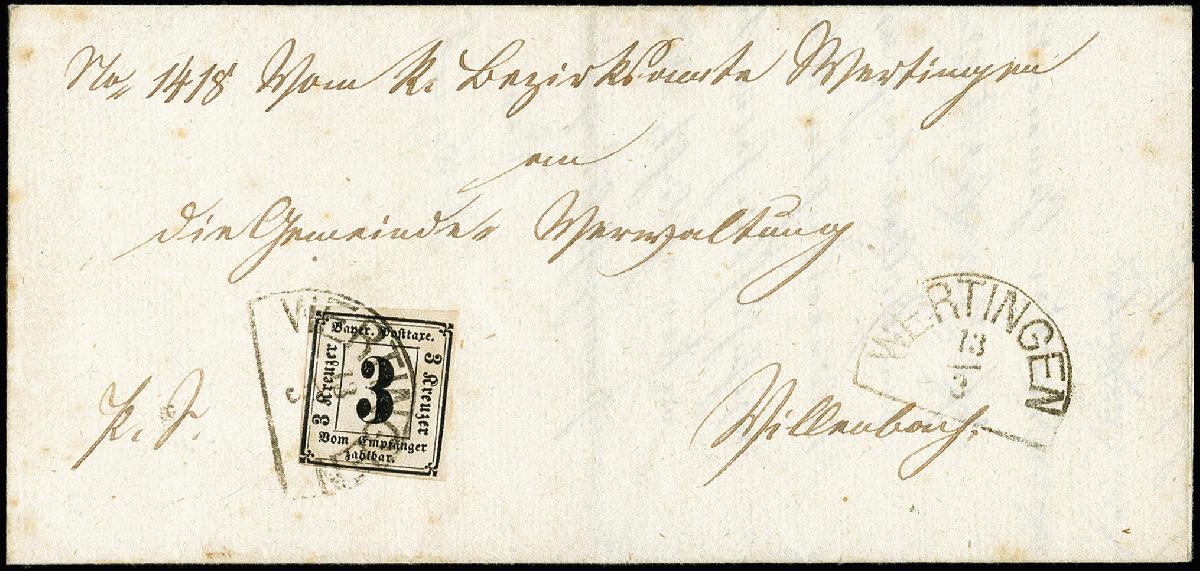 No 1418 Vom K. Bezirksamte Wertingen
an
die Gemeinde Verwaltung
WERTINGEN
13
3
Bayer. Posttaxe.
3 Kreuzer
3
3 Kreuzer
Vom Empfänger
zahlbar.
WERTINGEN
13
3
P. S.
Villenbach.